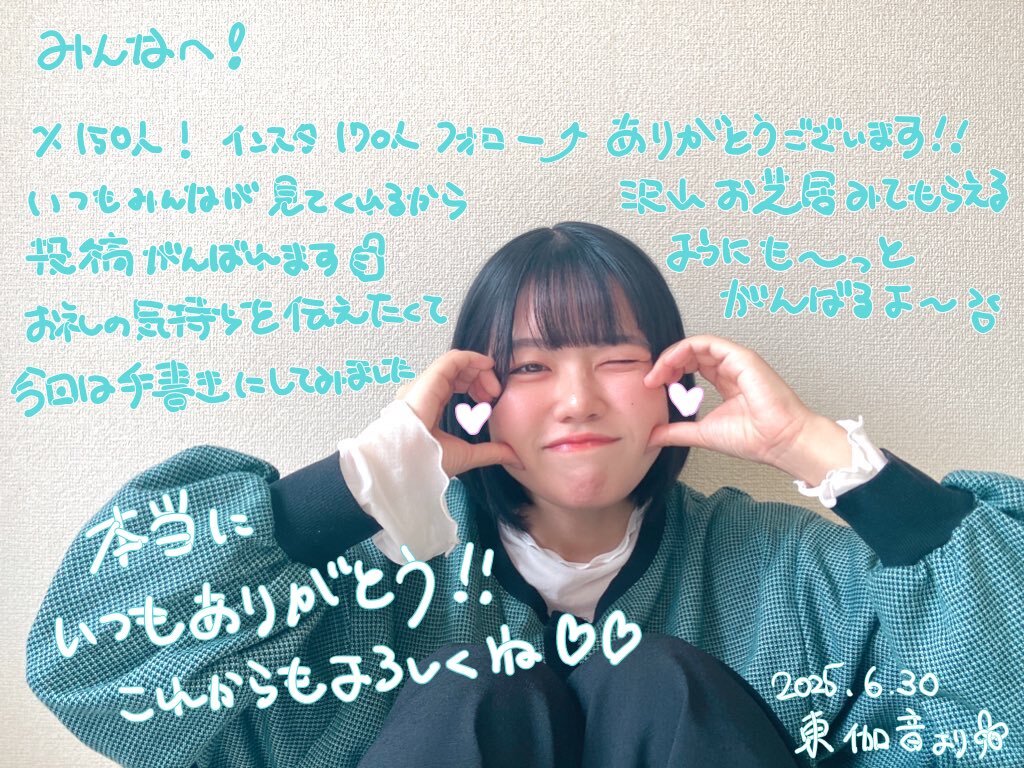 みんなへ!
X 150人! インスタ 170人 フォロー ありがとうございます!!
いつもみんなが見てくれるから
投稿がんばれます
お礼の気持ちを伝えたくて
今回は手書きにしてみました
沢山お芝居みてもらえる
ようにも〜っと
がんばるよ〜
本当に
いつもありがとう!!
これからもよろしくね♡♡
2025.6.30
東 伽音より